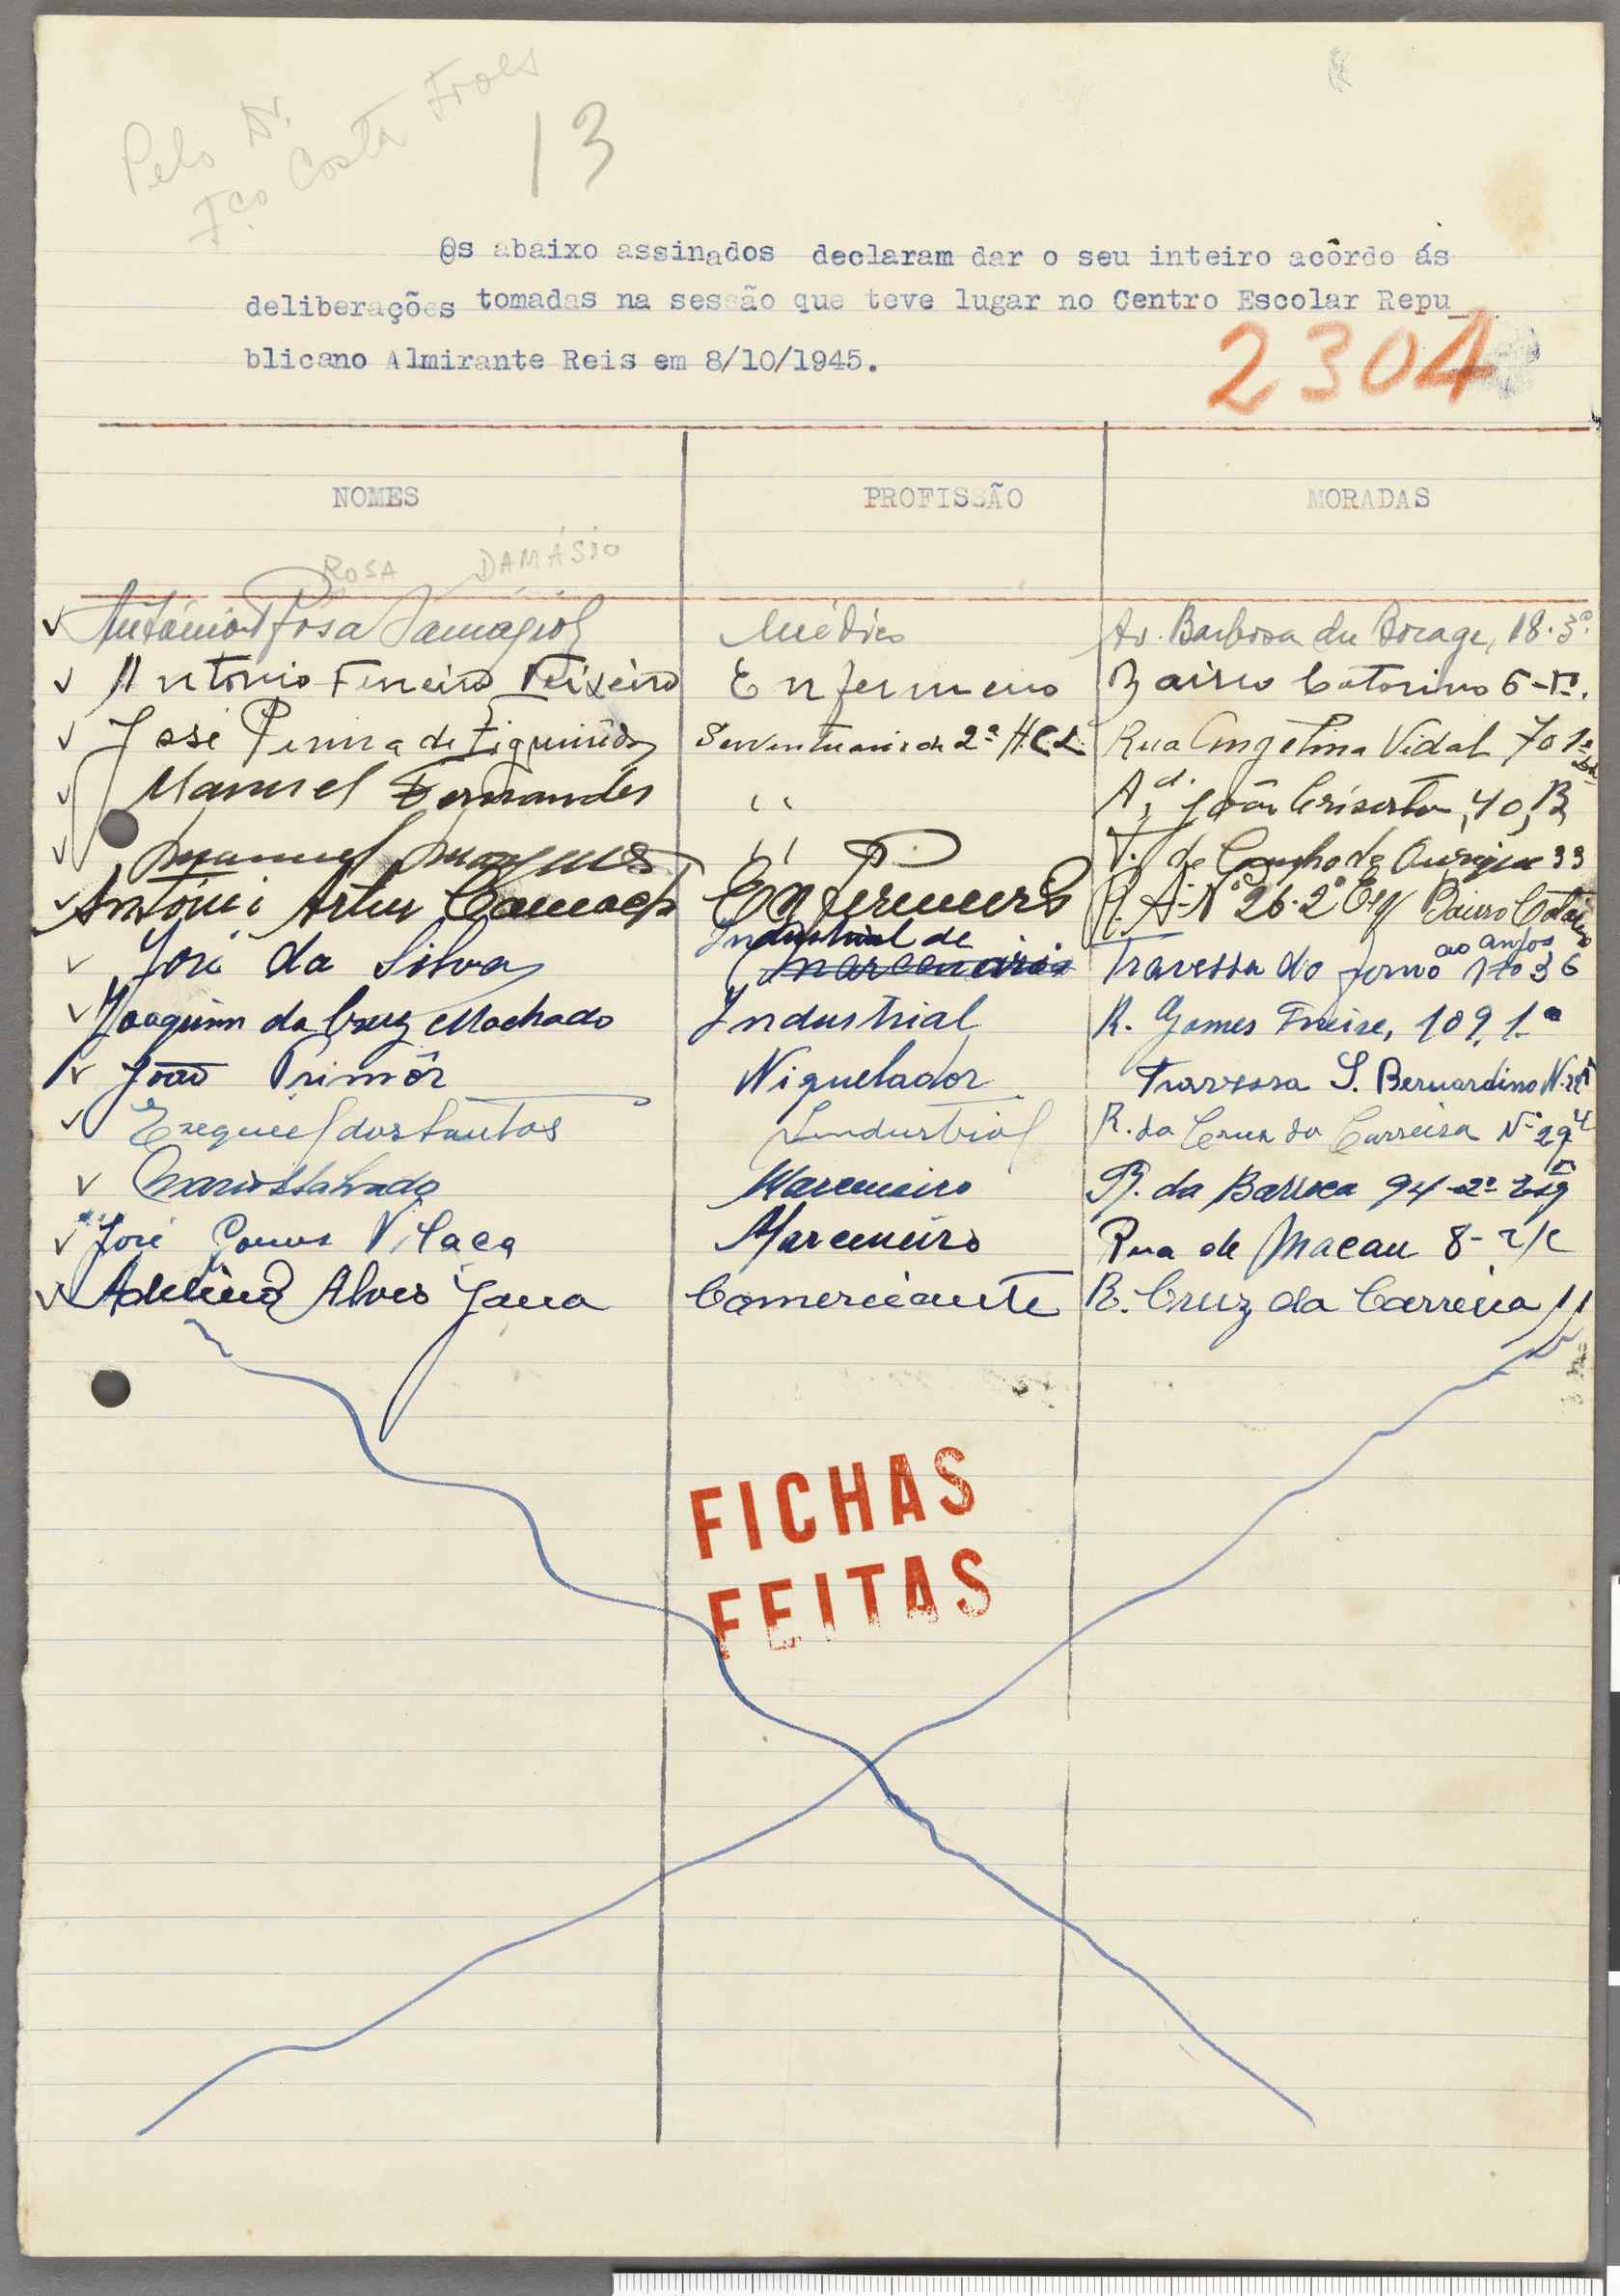 Pelo Dr.
Fco Costa Froes
13
Os abaixo assinados declaram dar o seu inteiro acôrdo ás
deliberações tomadas na sessão que teve lugar no Centro Escolar Repu_
blicano Almirante Reis em 8/10/1945.
2304
NOMES PROFISSÃO MORADAS
ROSA DAMÁSIO
António Rosa Damásio Médico Av. Barbosa du Bocage, 18-3º
Antonio Ferreira Teixeira Enfermeiro Bairro Catarino
José de Figueiredo Serventuario de 2ª H.C.L. Rua Angelina Vidal 70 1º
Manuel Fernandes ,, João 40, B
Manuel Marques ,, T. de de Ourique 33
Artur Camacho Enfermeiro R. A-Nº 26-2º Esq Bairro
José da Silva Industrial de marcenaria Travessa do Forno aos Anjos 36
Joaquim da Cruz Machado Industrial R. Gomes Freire, 109, 1º
João Primôr Niquelador Travessa S. Bernardino
Ezequiel dos Santos Industrial R. da Cruz da Carreira Nº 29
Mario Salvado Marceneiro R. da Barroca 94-2º Esq
José Vilaça Marceneiro Rua de Macau 8-r/c
Adelino Alves Jana Comerciante R. Cruz da Carreira 11
FICHAS
FEITAS